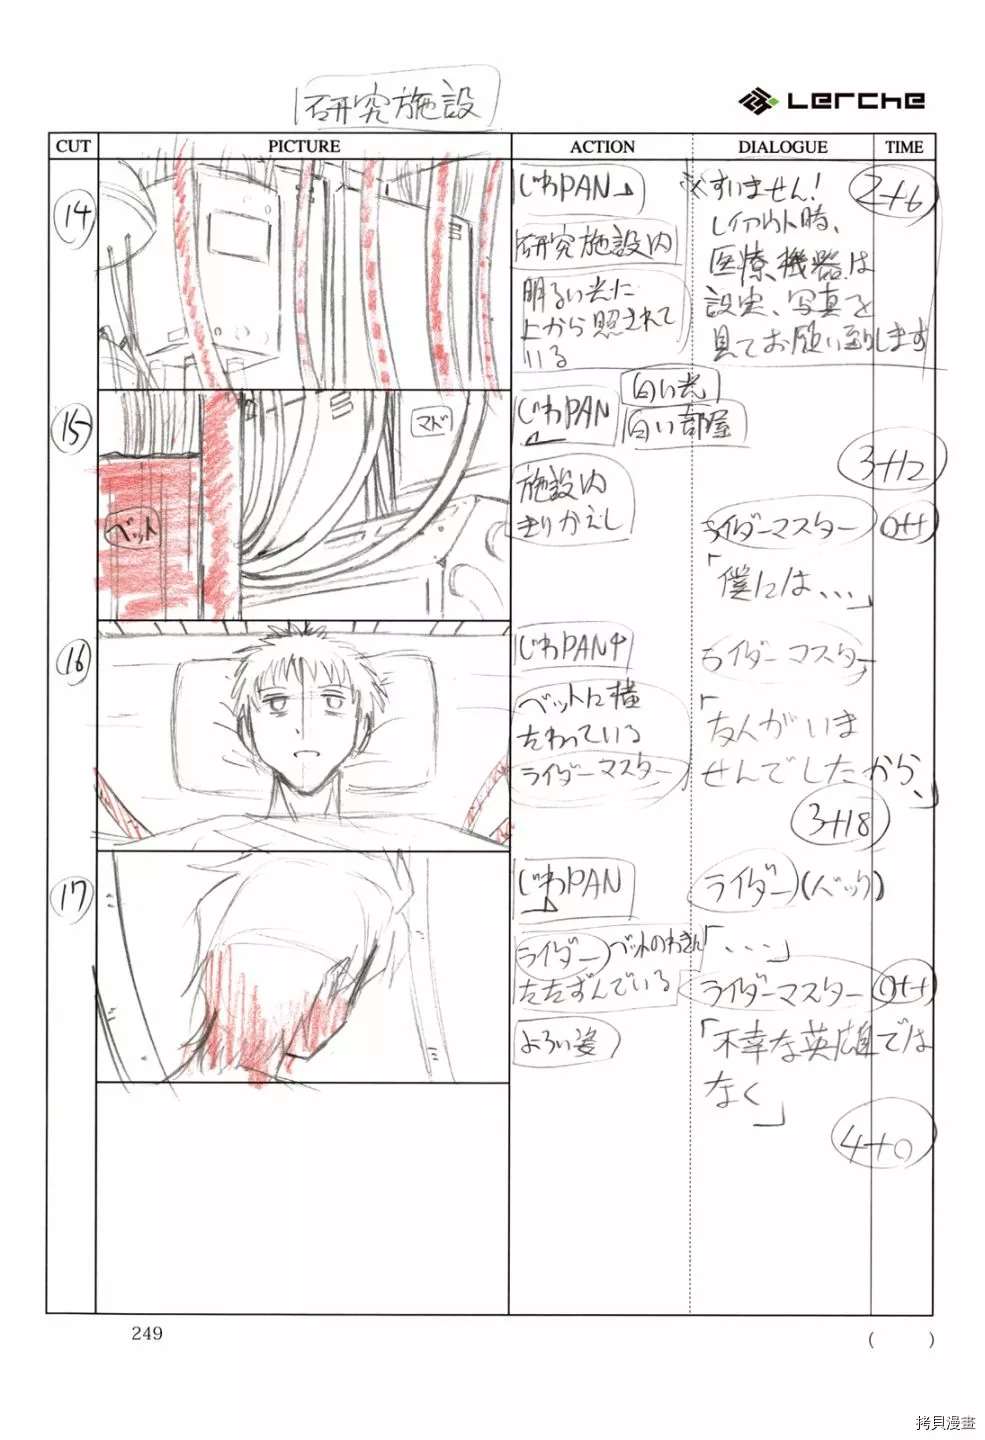 研究施設
Lerche
CUT
PICTURE
ACTION
DIALOGUE
TIME
14
じわPAN
研究施設内
明るい光に
上から照されて
いる
※すいません!
レイアウト時、
医療機器は
設定、写真を
見てお願い致します
2+6
15
マド
ベット
じわPAN
白い光
白い部屋
施設内
きりかえし
3+12
ライダーマスター
「僕には、、、」
16
じわPAN
ベットに横
たわっている
ライダーマスター
ライダーマスター
「友人がいま
せんでしたから、」
3+18
17
じわPAN
ライダー ベットのわきに
たたずんでいる
よろい姿
ライダー(バック)
「、、、」
ライダーマスター
「不幸な英雄では
なく」
4+0
249
( )
拷貝漫畫